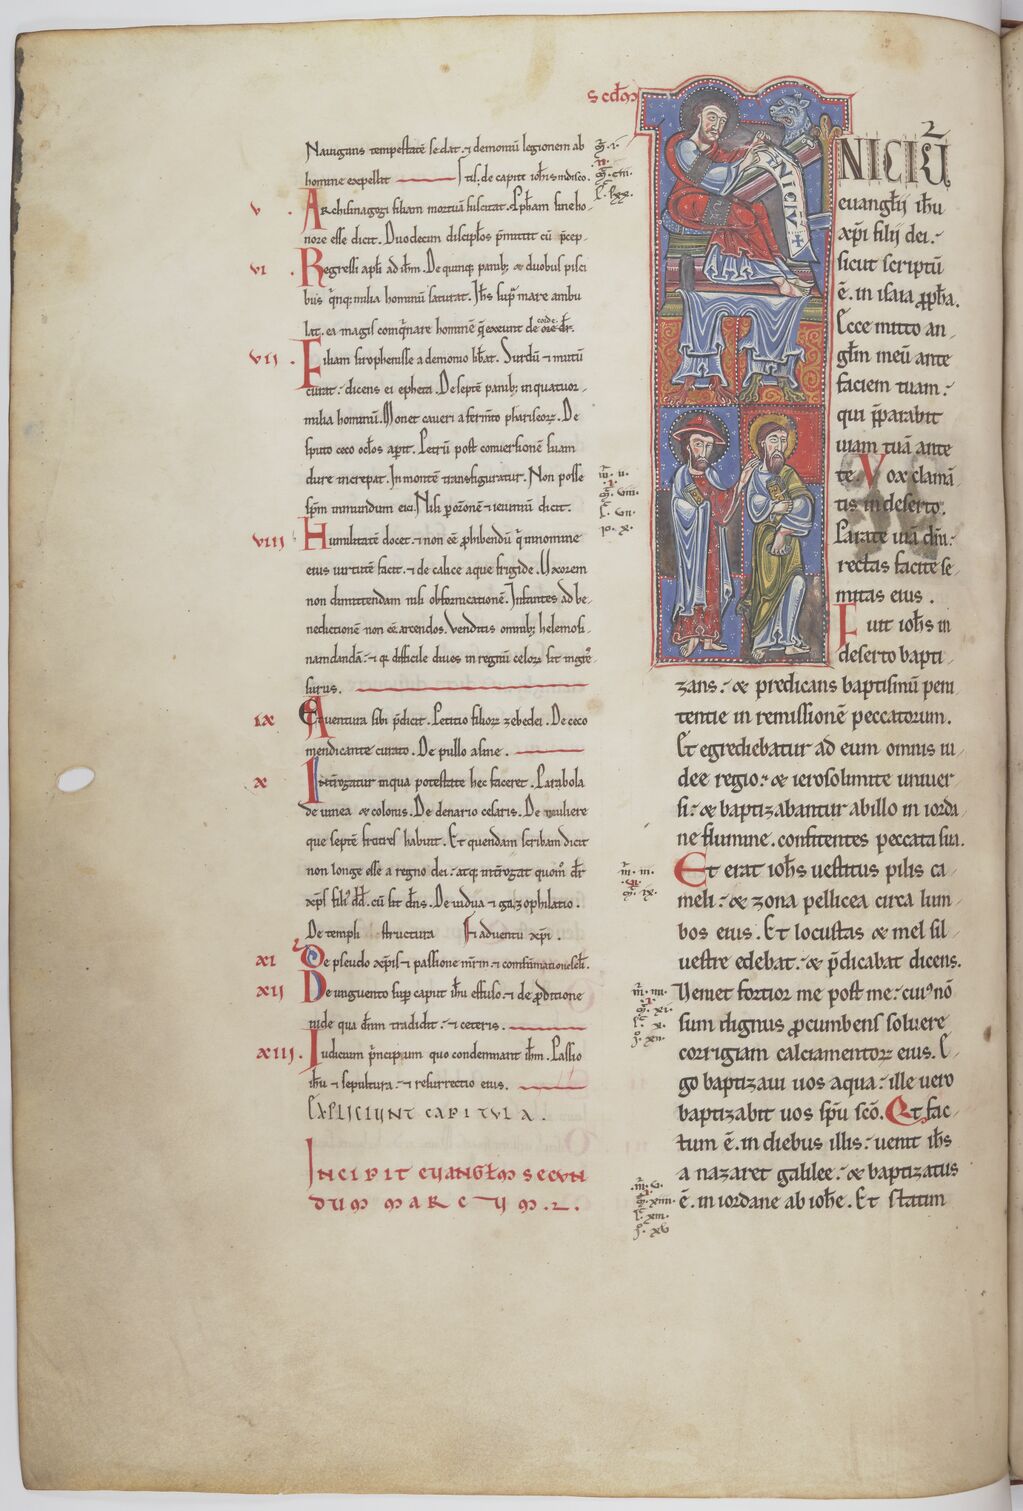 Nauigans tempestatē sedat. ⁊ demoniū legionem ab
homine expellit
V. Archisinagogi filiam mortuā suscitat. Pph̄am sine ho-
nore esse dicit. Duodecim discip̄los p̄mittit cū p̄cep-
tis. de capite ioh̄is in disco.
VI. Regressi ap̄li ad ih̄m. De quinq; panib; & duobus pisci
bus q̄nq; milia hominū saturat. Ih̄s sup̄ mare ambu
lat. ea magis comq̄nare hominē q̄ exeunt de corde ore dr̄.
VII. Filiam sirophenisse a demonio lib̄at. Surdū ⁊ mutū
curat. dicens ei epheta. De septē panib; in quatuor
milia hominū. Monet caueri a fermto phariseoꝝ. De
sputo ceco oclos aperit. Petrū post conuersionē suam
dure increpat. In montē transfiguratur. Non posse
sp̄m inmundum eici. Nisi p oronē ⁊ ieiuniū dicit.
VIII Humilitatē docet. ⁊ non eē phibendū q̄ in nomine
eius uirtutē facit. ⁊ de calice aque frigide. Uxorem
non dimittendam nisi ob fornicationē. Infantes ad be-
nedictionē non eē arcendos. Venditis omnib; helemosi-
nam dandā. ⁊ q difficile diues in regnū celoꝝ sit ingres
surus.
IX Aduentura sibi p̄dicit. Petitio filioꝝ zebedei. De ceco
mendicante curato. De pullo asine.
X Introgatur in qua potestate hec faceret. Parabola
de uinea & colonis. De denario cesaris. De muliere
que septē fratres habuit. Et quendam scribam dicit
non longe esse a regno dei. atq; introgat quom̄ dr̄
xp̄s filiꝰ dd̄. cū sit dn̄s. De uidua ⁊ gazophilatio.
De templi structura Et aduentu xp̄i.
XI De pseudo xp̄is ⁊ passione
XII De unguento sup̄ caput ih̄u effuso. ⁊ de p̄ditione
iude qua dn̄m tradidit. ⁊ ceteris.
XIII. Iudicium p̄ncipum quo condemnant ih̄m. Passio
ih̄u ⁊ sepultura. ⁊ resurrectio eius.
EXPLICIUNT CAPITULA.
INCIPIT EVANGĿM SECVN
DUM MARCUM. 2.
INICIV
NICIŪ
euangĺij ih̄u
xp̄i filij dei.
sicut scriptū
ē. in isaia pph̄a.
Ecce mitto an-
glm̄ meū ante
faciem tuam.
qui pparabit
uiam tuā ante
te. Vox clamā
tis in deserto.
Parate uiā dn̄i.
rectas facite se-
mitas eius.
Fuit ioh̄s in
deserto bapti-
zans. & predicans baptismū peni
tentie in remissionē peccatorum.
Et egrediebatur ad eum omnis iu-
dee regio. & ierosolimite uniuer
si. & baptizabantur ab illo in iorda
ne flumine. confitentes peccata sua.
Et erat ioh̄s uestitus pilis ca-
meli. & zona pellicea circa lum-
bos eius. Et locustas & mel sil-
uestre edebat. & p̄dicabat dicens.
Veniet fortior me post me. cuiꝰ nō
sum dignus pcumbens soluere
corrigiam calciamentoꝝ eius. E-
go baptizaui uos aqua. ille uero
baptizabit uos sp̄u scō. Et fac-
tum ē. in diebus illis. uenit ih̄s
a nazaret galilee. & baptizatus
ē. in iordane ab ioh̄e. Et statim